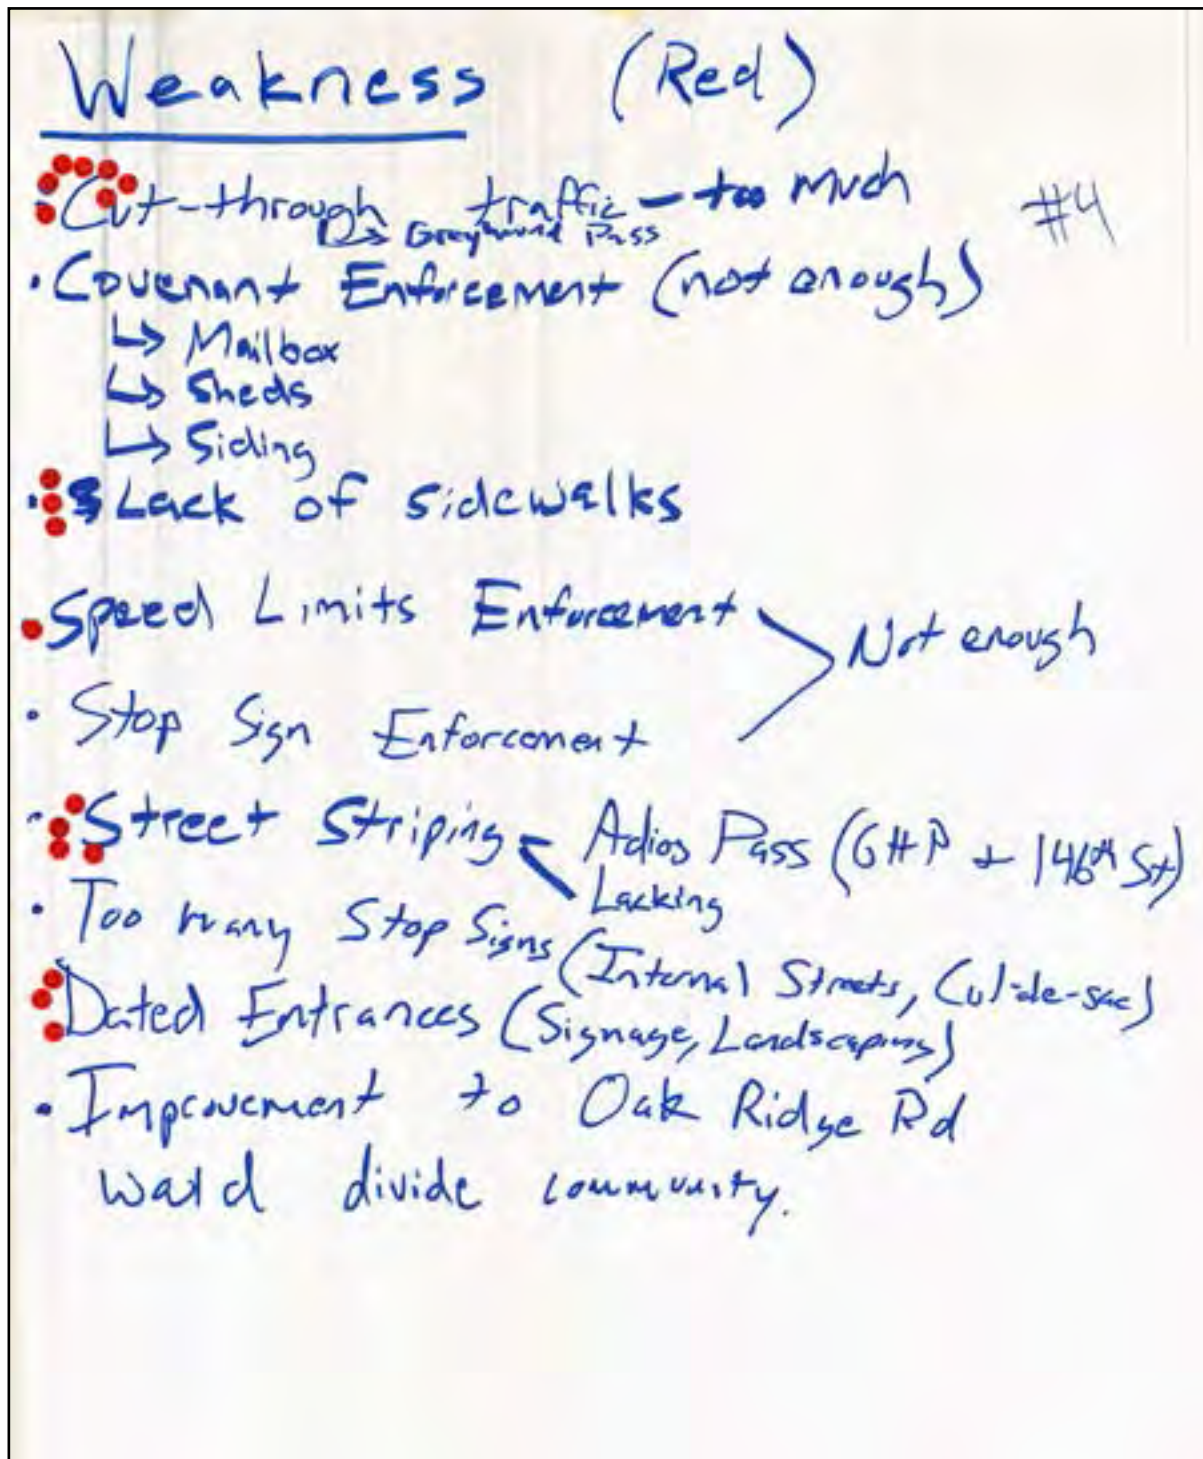 Weakness (Red)
#4
• Cut-through traffic - too much
↳ Greyhound Pass
• Covenant Enforcement (not enough)
↳ Mailbox
↳ Sheds
↳ Siding
• Lack of sidewalks
• Speed Limits Enforcement
Not enough
• Stop Sign Enforcement
• Street Striping < Adios Pass (GHP + 146th St)
Lacking
• Too many Stop Signs (Internal Streets, Cul-de-sac)
• Dated Entrances (Signage, Landscaping)
• Improvement to Oak Ridge Rd
would divide community.